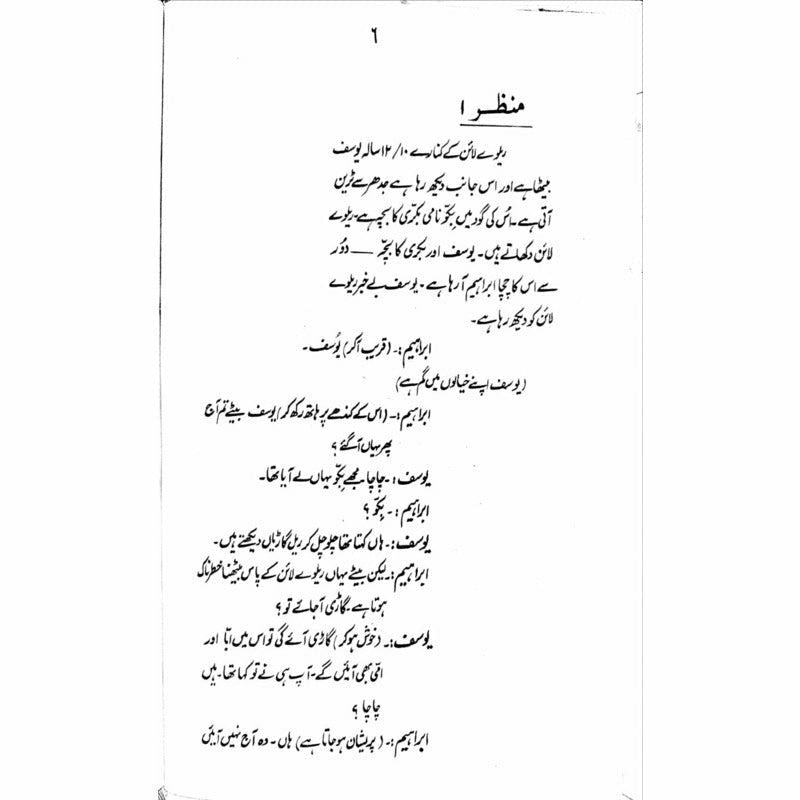 ۶
منظر ۱
ریلوے لائن کے کنارے ۱۰/۱۲ سالہ یوسف
بیٹھا ہے اور اس جانب دیکھ رہا ہے جدھر سے ٹرین
آتی ہے۔ اُس کی گود میں بِکّو نامی بکری کا بچہ ہے۔ ریلوے
لائن دکھاتے ہیں۔ یوسف اور بکری کا بچّہ — دُور
سے اس کا چچا ابراہیم آرہا ہے۔ یوسف بے خبر ریلوے
لائن کو دیکھ رہا ہے۔
ابراہیم :۔ (قریب آکر) یُوسف۔
(یوسف اپنے خیالوں میں گم ہے)
ابراہیم :۔ (اس کے کندھے پر ہاتھ رکھ کر) یوسف بیٹے تم آج
پھر یہاں آگئے ؟
یوسف :۔ چاچا۔ مجھے بِکّو یہاں لے آیا تھا۔
ابراہیم :۔ بِکّو ؟
یوسف :۔ ہاں کہتا تھا چلو چل کر ریل گاڑیاں دیکھتے ہیں۔
ابراہیم :۔ لیکن بیٹے یہاں ریلوے لائن کے پاس بیٹھنا خطرناک
ہوتا ہے۔ گاڑی آجائے تو ؟
یوسف :۔ (خوش ہوکر) گاڑی آئے گی تو اس میں ابّا اور
امّی بھی آئیں گے۔ آپ ہی نے تو کہا تھا۔ ہیں
چاچا ؟
ابراہیم :۔ (پریشان ہوجاتا ہے) ہاں۔ وہ آج نہیں آئیں